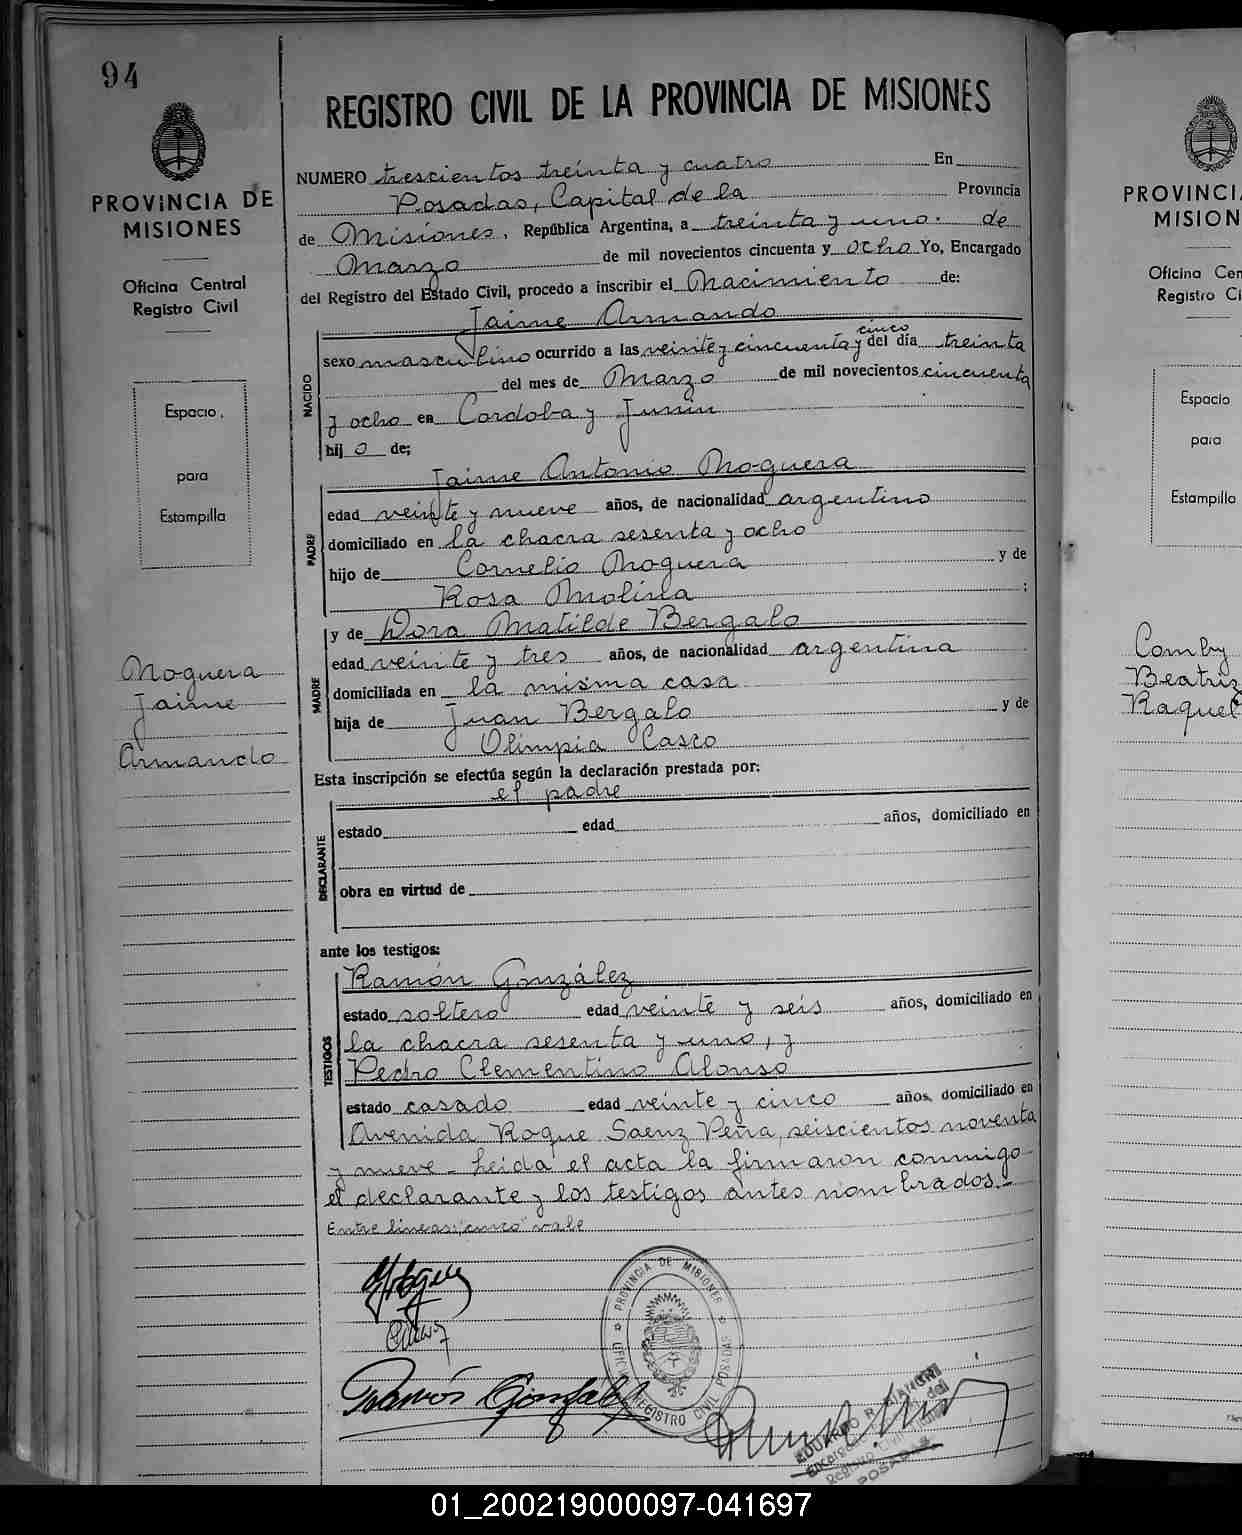 94
PROVINCIA DE
MISIONES
Oficina Central
Registro Civil
Espacio
para
Estampilla
Noguera
Jaime
Armando
REGISTRO CIVIL DE LA PROVINCIA DE MISIONES
NUMERO trescientos treinta y cuatro En
Posadas, Capital de la Provincia
de Misiones, República Argentina, a treinta y uno. de
Marzo de mil novecientos cincuenta y ocho Yo, Encargado
del Registro del Estado Civil, procedo a inscribir el Nacimiento de:
Jaime Armando
NACIDO
cinco
sexo masculino ocurrido a las veinte y cincuenta y del día treinta
del mes de Marzo de mil novecientos cincuenta
y ocho en Cordoba y Junin
hij o de;
Jaime Antonio Noguera
PADRE
edad veinte y nueve años, de nacionalidad argentino
domiciliado en la chacra sesenta y ocho
hijo de Cornelio Noguera y de
Rosa Molina ;
y de Dora Matilde Bergalo
MADRE
edad veinte y tres años, de nacionalidad argentina
domiciliada en la misma casa
hija de Juan Bergalo y de
Olimpia Casco
Esta inscripción se efectúa según la declaración prestada por:
el padre
DECLARANTE
estado edad años, domiciliado en
obra en virtud de
ante los testigos:
Ramón González
TESTIGOS
estado soltero edad veinte y seis años, domiciliado en
la chacra sesenta y uno, y
Pedro Clementino Alonso
estado casado edad veinte y cinco años, domiciliado en
Avenida Roque Saenz Peña, seiscientos noventa
y nueve - Leida el acta la firmaron conmigo
el declarante y los testigos antes nombrados.-
Entre lineas: "cinco" vale
Ramón Gonzalez
PROVINCIA DE MISIONES
REGISTRO CIVIL POSADAS
EDUARDO R.
Encargado del
Registro Civil
POSADAS
PROVINCI
MISION
Oficina Cen
Registro Ci
Espacio
para
Estampilla
Comby
Beatriz
Raquel
01_200219000097-041697